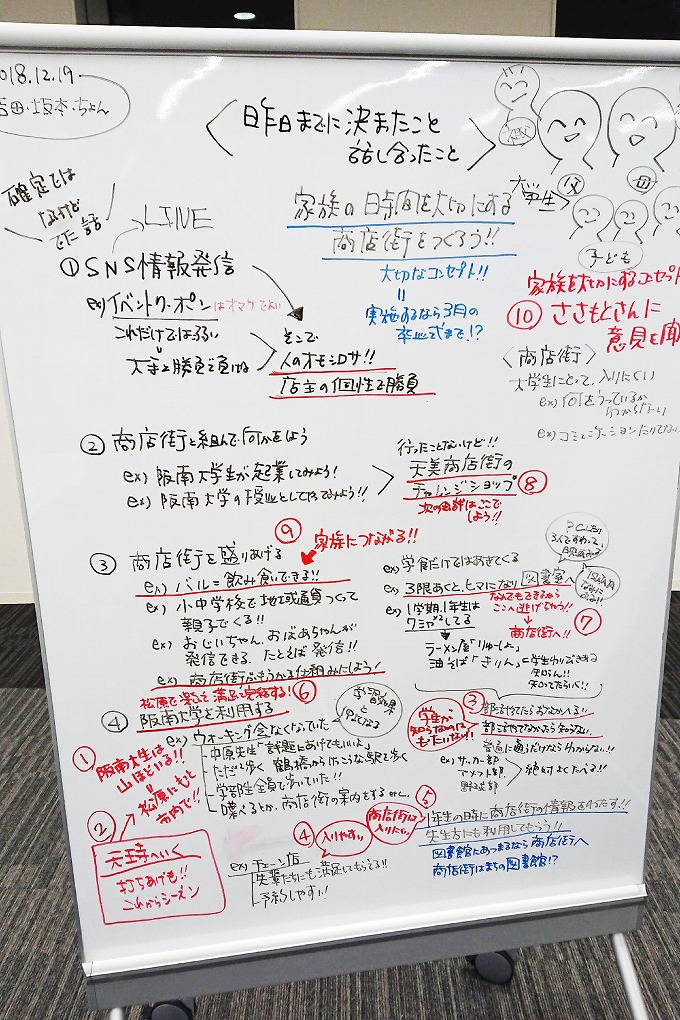 018.12.19
吉田・坂本・ちょん
昨日までに決またこと
話し合ったこと
確定では
ないけど
でた話
LINE
家族の時間を大切にする
商店街をつくろう!!
大切なコンセプト!!
実施するなら3月の
卒業式まで!?
父
母
大学生
子ども
家族を大切にするコンセプト
⑩ ささもとさんに
意見を聞
① SNS情報発信
ex) イベントクーポンはオマケでよい
これだけではふるい
大手と勝負で負ける
そこで
人のオモシロサ!!
店主の個性で勝負
〈商店街〉
大学生にとって、入りにくい
ex) 何をうっているか
わからない
ex) コミュニケーションたりてない
② 商店街と組んで何かをしよう
ex) 阪南大学生が起業してみよう!
ex) 阪南大学の授業としてやってみよう!!
行ったことないけど!!
天美商店街の
チャレンジショップ
⑧
次の会議はここで
しよう!!
⑨ 家族につながる!!
③ 商店街を盛りあげる
ex) バル=飲み食いできる!!
ex) 小中学校で地域通貨つくって
親子でくる!!
ex) おじいちゃん、おばあちゃんが
発信できる、たとえば発信!!
ex) 商店街がもうかる仕組みにしよう!
松原で楽しむ満足で完結する! ⑥
ex) 学食だけではあきてくる
ex) 3限あくと、ヒマになり図書室へ
なんでもできるから
ここへ逃げちゃう!!
商店街へ!! ⑦
ex) 1学期、1年生は
している
ラーメン屋「りゅうしょ」
油そば「きりん」=学生わりできる
知らん!!
知ってたらいい!!
④ 阪南大学を利用する
ex) ウォーキング会なくなっていた
中原先生「議題にあげてもいいよ」
ただで歩く 鶴橋から向こうな駅で歩く
学部生全員で歩いていた!!
喋べるとか、商店街の案内をするとし、
学習効果
と
① 阪南大生は
山ほどいる!!
松原にもと
市内で!!
② 天王寺へいく
打ちあげも!!
これからシーズン
③ 部活やってたらおなかへる!!
学生が
知らなのは
もったいない!!
部活やてなかたら知らない。
普通に通うだけならわからない!!
ex) サッカー部
アメフト部
野球部
絶対よくたべる!!
④ 入りやすい
商店街は
入りたい
ex) チェーン店
先輩たちにも満足してもらえる!!
予約しやすい!
⑤ 1年生の時に商店街の情報をわたす!!
先生方にも利用してもらう!!
図書館にあつまるなら商店街へ
商店街はまちの図書館!?